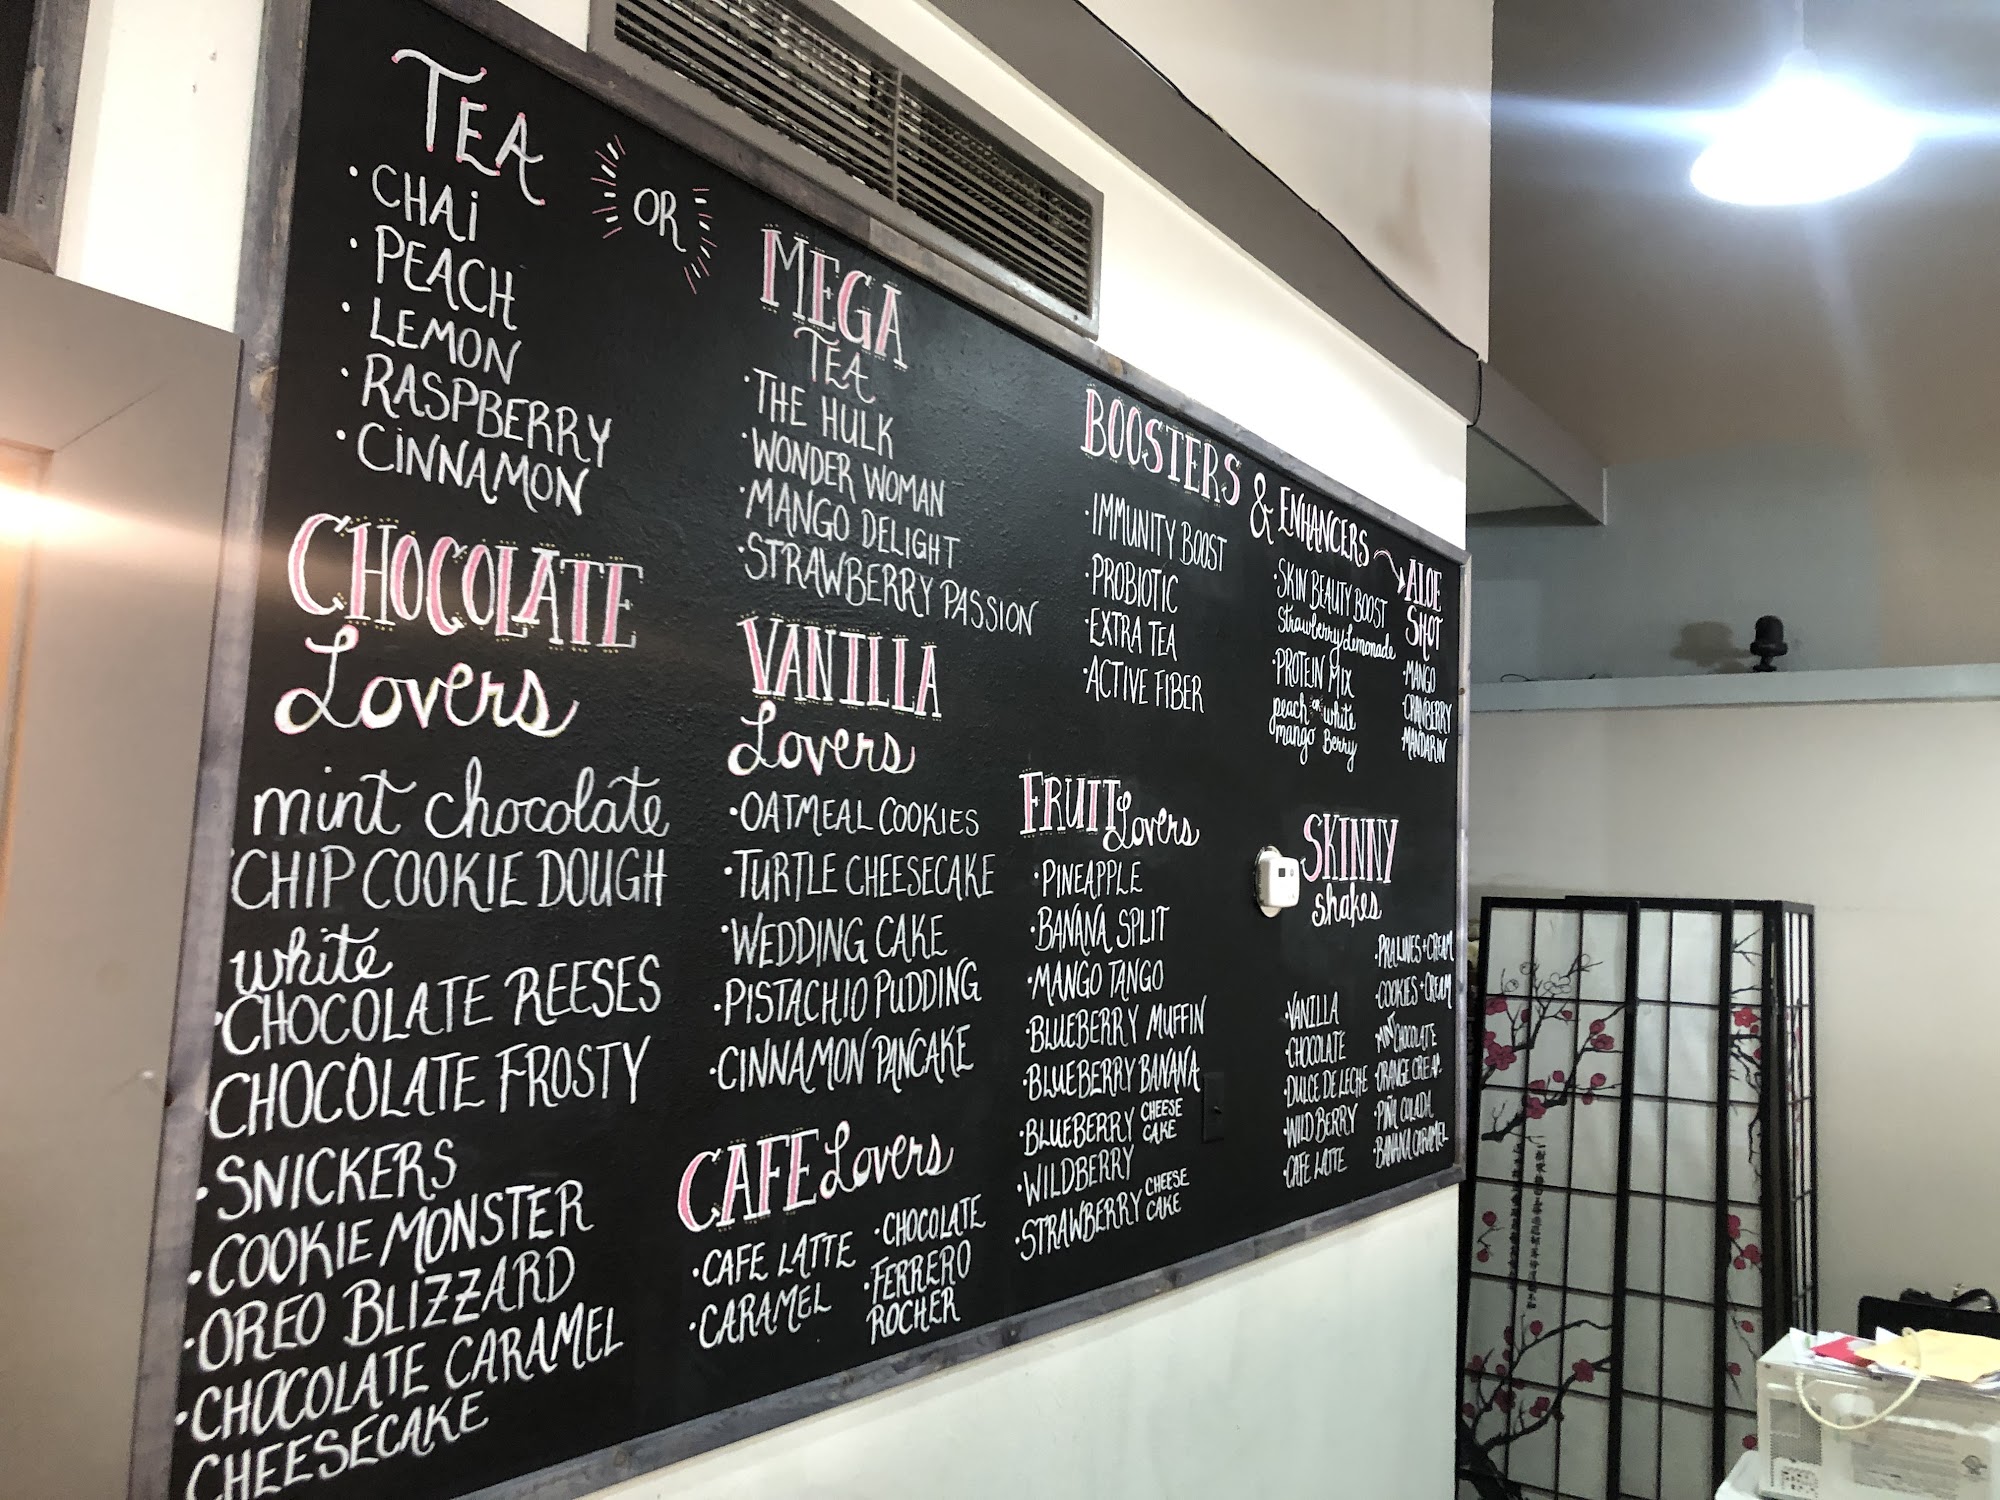 TEA
• CHAi
• PEACH
• LEMON
• RASPBERRY
• CiNNAMON
OR
MEGA
TEA
• THE HULK
• WONDER WOMAN
• MANGO DELIGHT
• STRAWBERRY PASSION
BOOSTERS & ENHANCERS
• IMMUNITY BOOST
• PROBIOTIC
• EXTRA TEA
• ACTIVE FIBER
• SKIN BEAUTY BOOST
strawberry/lemonade
• PROTEIN MIX
peach or white
mango Berry
ALOE
SHOT
• MANGO
• CRANBERRY
• MANDARIN
CHOCOLATE
Lovers
mint chocolate
• CHIP COOKIE DOUGH
white
• CHOCOLATE REESES
• CHOCOLATE FROSTY
• SNICKERS
• COOKIE MONSTER
• OREO BLIZZARD
• CHOCOLATE CARAMEL
CHEESECAKE
VANILLA
Lovers
• OATMEAL COOKIES
• TURTLE CHEESECAKE
• WEDDING CAKE
• PISTACHIO PUDDING
• CINNAMON PANCAKE
CAFE Lovers
• CAFE LATTE
• CARAMEL
• CHOCOLATE
• FERRERO
ROCHER
FRUIT Lovers
• PINEAPPLE
• BANANA SPLIT
• MANGO TANGO
• BLUEBERRY MUFFIN
• BLUEBERRY BANANA
• BLUEBERRY CHEESE CAKE
• WILDBERRY
• STRAWBERRY CHEESE CAKE
SKINNY
shakes
• VANILLA
• CHOCOLATE
• DULCE DE LECHE
• WILD BERRY
• CAFE LATTE
• PRALINES + CREAM
• COOKIES + CREAM
• MINT CHOCOLATE
• ORANGE CREAM
• PIÑA COLADA
• BANANA CARAMEL